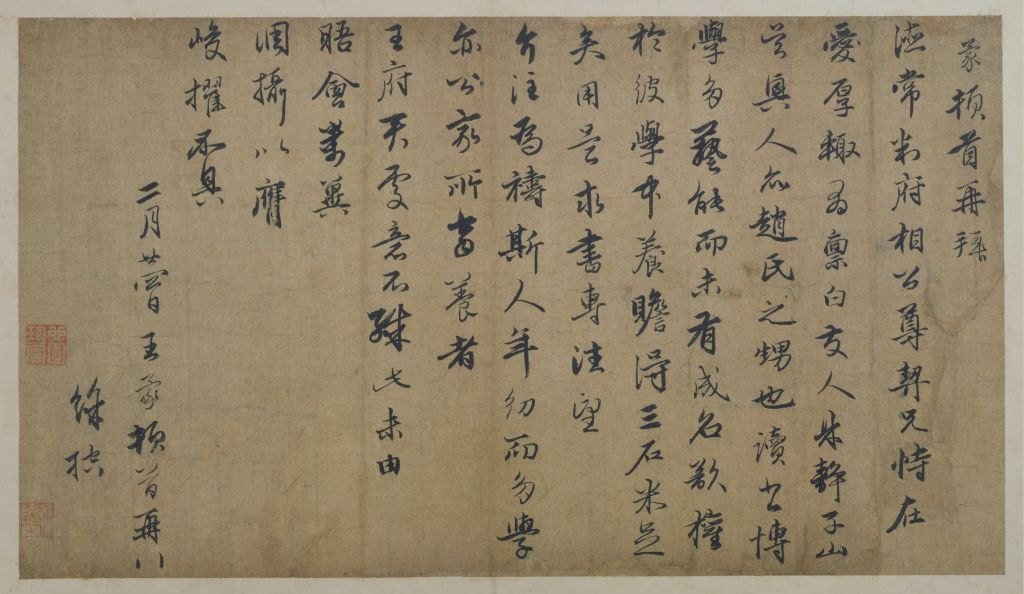 蒙頓首再拜
德常判府相公尊契兄恃在
愛厚輒為稟白友人朱靜子山
吳興人亦趙氏之甥也讀書博
學多藝能而未有成名欲權
於彼學中養贍得三石米足
矣用是求書專注望
介注為禱斯人年幼而多學
亦公家所當養者
王府天雯意不殊此未由
晤會萬冀
調攝以膺
峻擢不具
二月廿四日王蒙頓首再